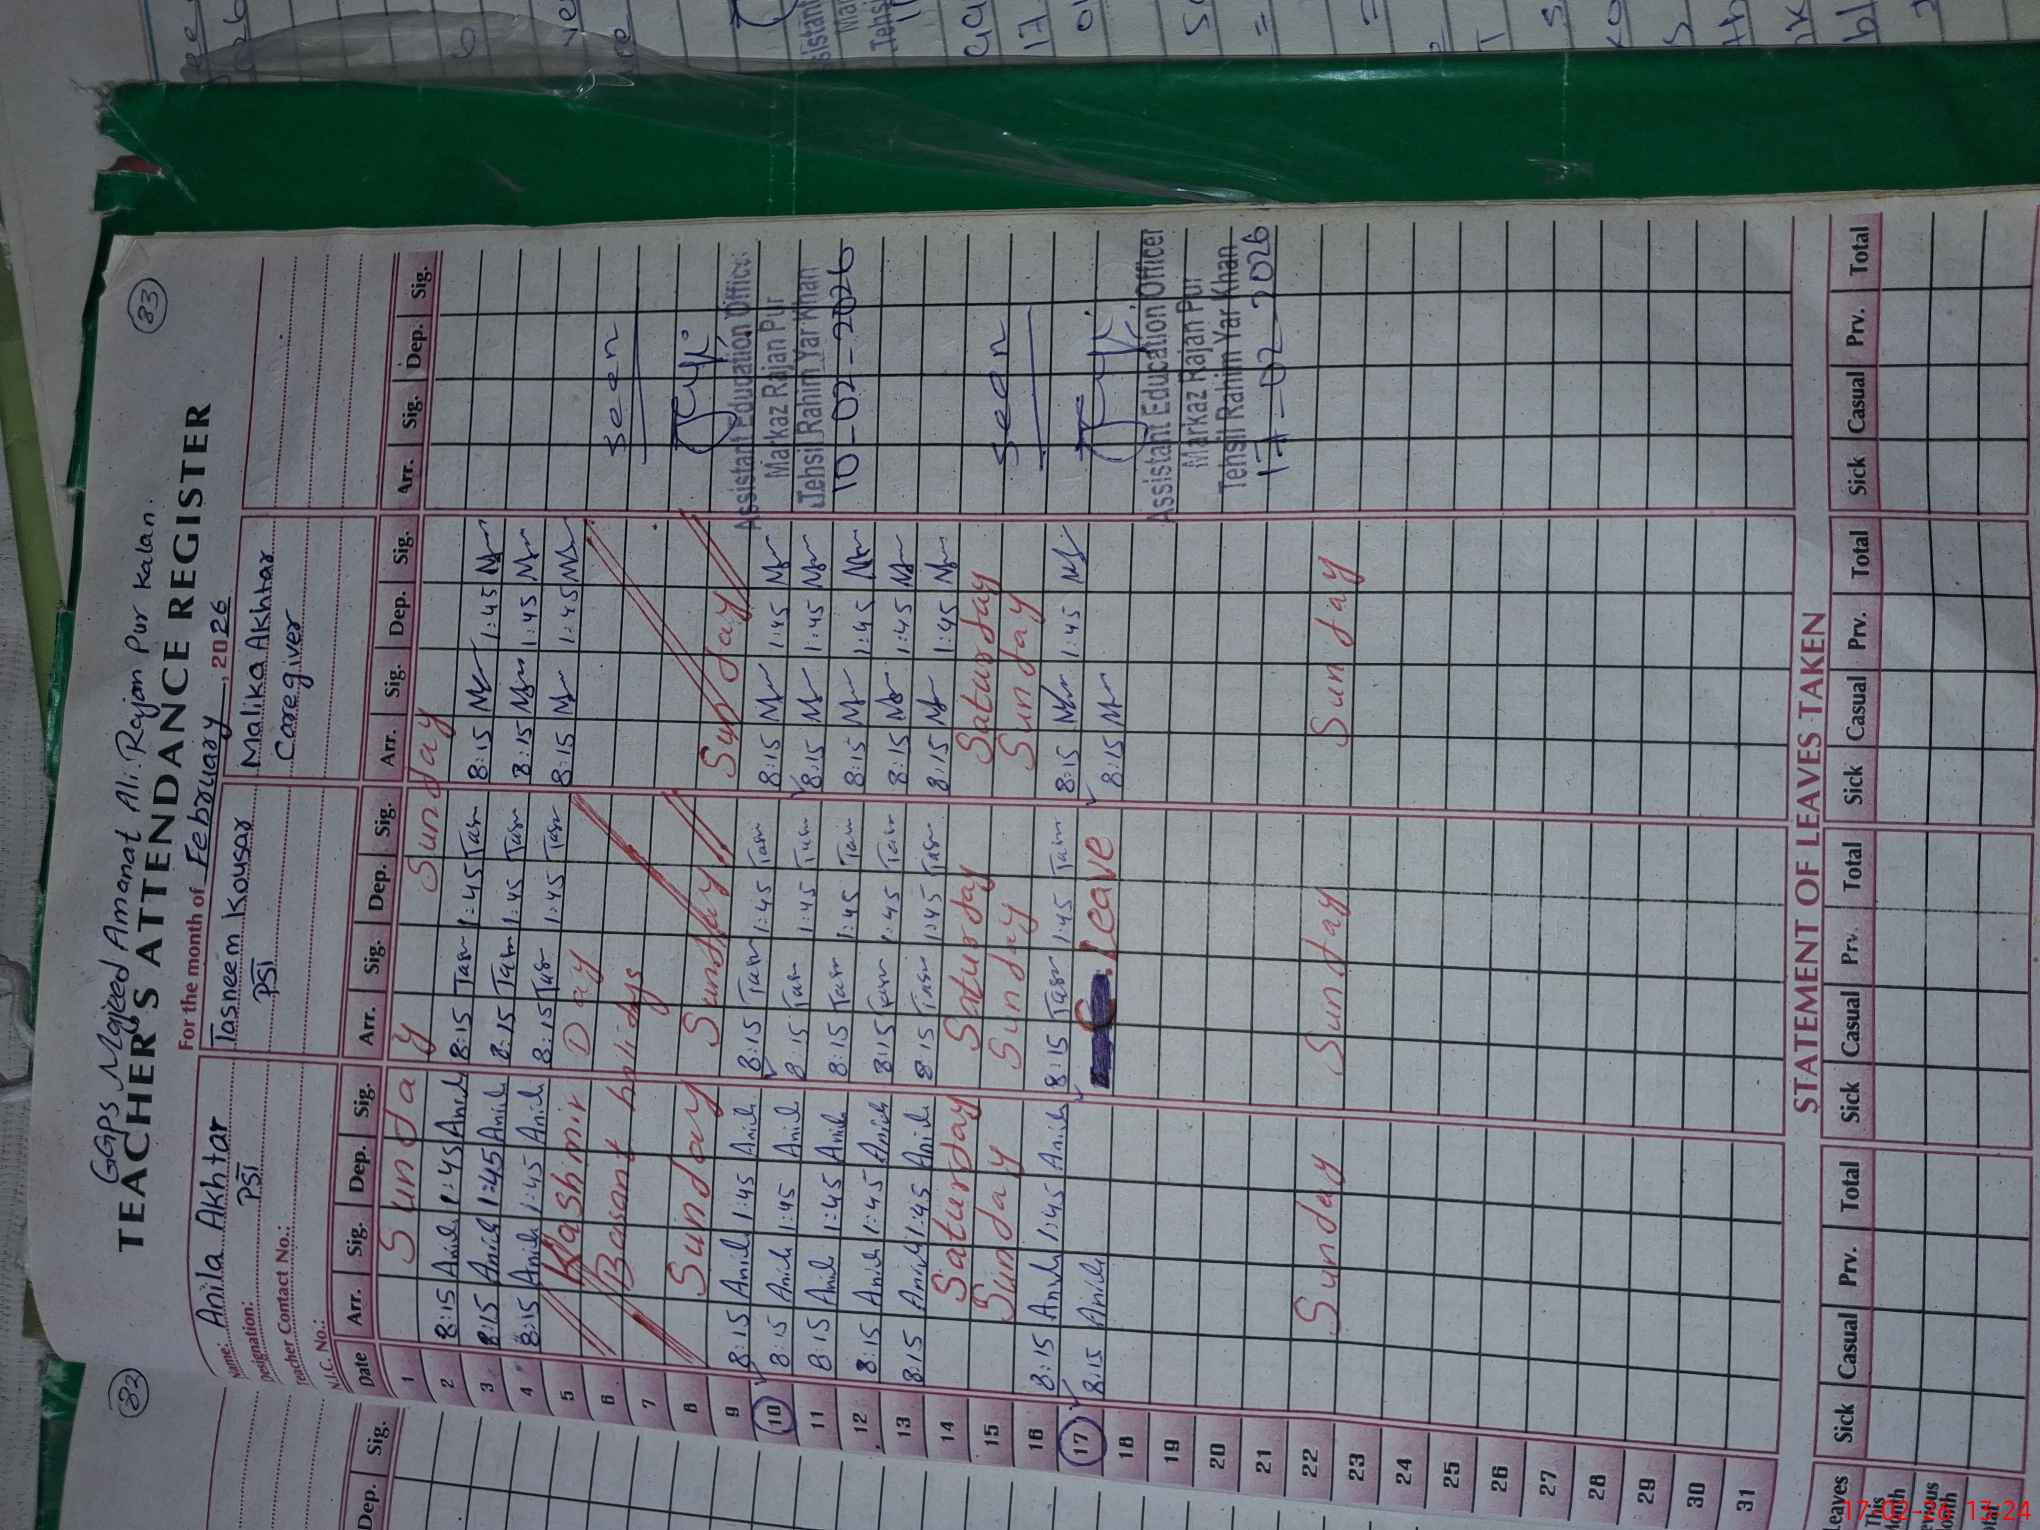 83
GGPS Majeed Amanat Ali Rajan Pur Kalan.
TEACHER'S ATTENDANCE REGISTER
For the month of February, 2026
Name: Anila Akhtar Tasneem Kousar Malika Akhtar
Designation: PST PST Caregiver
Teacher Contact No.:
N.I.C. No.:
Date Arr. Sig. Dep. Sig. Arr. Sig. Dep. Sig. Arr. Sig. Dep. Sig. Arr. Sig. Dep. Sig.
1 Sunday Sunday
2 8:15 1:45 8:15 Tasn 1:45 Tasn 8:15 1:45
3 8:15 1:45 8:15 Tasn 1:45 Tasn 8:15 1:45
4 8:15 1:45 8:15 Tasn 1:45 Tasn 8:15 1:45
5 Kashmir Day
6 Basant holidys
7
8 Sunday Sunday Sunday
9 8:15 1:45 8:15 Tasn 1:45 Tasn 8:15 1:45
10 8:15 1:45 8:15 Tasn 1:45 Tasn 8:15 1:45
11 8:15 1:45 8:15 Tasn 1:45 Tasn 8:15 1:45
12 8:15 1:45 8:15 Tasn 1:45 Tasn 8:15 1:45
13 8:15 1:45 8:15 Tasn 1:45 Tasn 8:15 1:45
14 Saturday Saturday Saturday
15 Sunday Sunday Sunday
16 8:15 1:45 8:15 Tasn 1:45 Tasn 8:15 1:45
17 8:15 Leave 8:15
18
19
20
21
22 Sunday Sunday Sunday
23
24
25
26
27
28
29
30
31
seen
Assistant Education Officer
Markaz Rajan Pur
Tehsil Rahim Yar Khan
10-02-2026
seen
Assistant Education Officer
Markaz Rajan Pur
Tehsil Rahim Yar Khan
17-02-2026
STATEMENT OF LEAVES TAKEN
Leaves Sick Casual Prv. Total Sick Casual Prv. Total Sick Casual Prv. Total Sick Casual Prv. Total
This
82
Dep. Sig.
Dep. Sig.
17-02-26 13:24